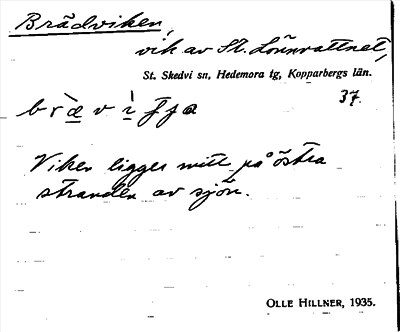 Brädviken,
vik av St. Lönnvattnet,
St. Skedvi sn, Hedemora tg, Kopparbergs län.
37.
Viken ligger mitt på östra
stranden av sjön.
OLLE HILLNER, 1935.